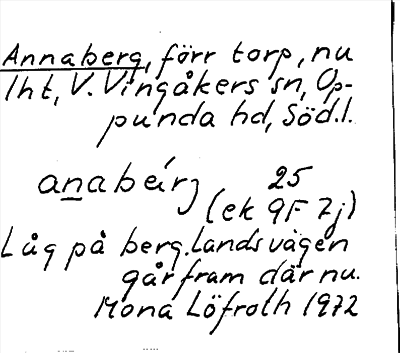 Annaberg, förr torp, nu
lht, V. Vingåkers sn, Op-
punda hd, Söd.l.
anabeírg 25
(ek 9F 7j)
Låg på berg. Landsvägen
går fram där nu.
Mona Löfroth 1972